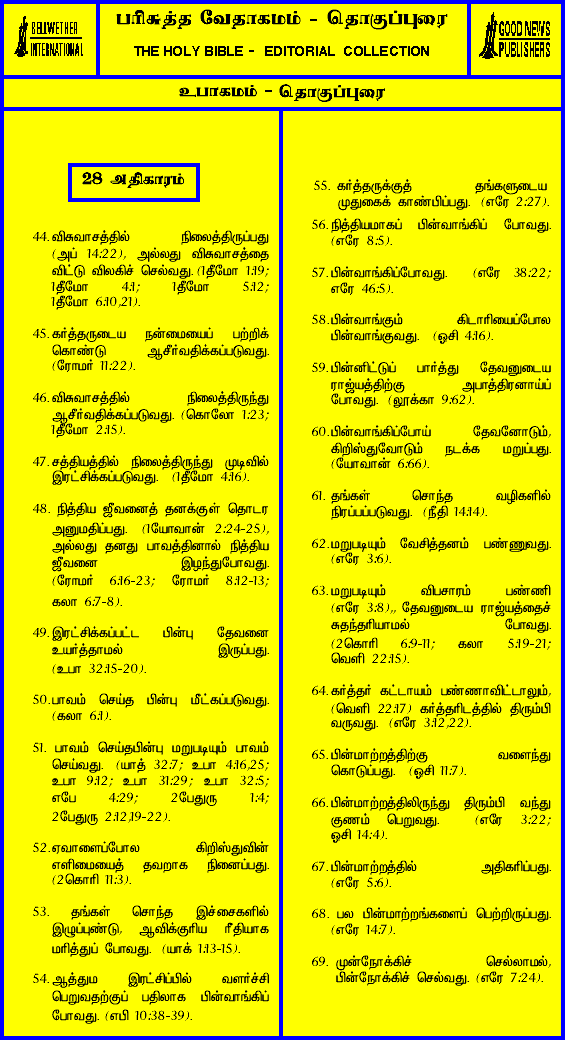 BELLWETHER
INTERNATIONAL
பரிசுத்த வேதாகமம் - தொகுப்புரை
THE HOLY BIBLE - EDITORIAL COLLECTION
GOOD NEWS
PUBLISHERS
உபாகமம் - தொகுப்புரை
28 அதிகாரம்
44.விசுவாசத்தில் நிலைத்திருப்பது
(அப் 14:22), அல்லது விசுவாசத்தை
விட்டு விலகிச் செல்வது. (1தீமோ 1:19;
1தீமோ 4:1; 1தீமோ 5:12;
1தீமோ 6:10,21).
45.கர்த்தருடைய நன்மையைப் பற்றிக்
கொண்டு ஆசீர்வதிக்கப்படுவது.
(ரோமர் 11:22).
46.விசுவாசத்தில் நிலைத்திருந்து
ஆசீர்வதிக்கப்படுவது. (கொலோ 1:23;
1தீமோ 2:15).
47.சத்தியத்தில் நிலைத்திருந்து முடிவில்
இரட்சிக்கப்படுவது. (1தீமோ 4:16).
48. நித்திய ஜீவனைத் தனக்குள் தொடர
அனுமதிப்பது. (1யோவான் 2:24-25),
அல்லது தனது பாவத்தினால் நித்திய
ஜீவனை இழந்துபோவது.
(ரோமர் 6:16-23; ரோமர் 8:12-13;
கலா 6:7-8).
49.இரட்சிக்கப்பட்ட பின்பு தேவனை
உயர்த்தாமல் இருப்பது.
(உபா 32:15-20).
50.பாவம் செய்த பின்பு மீட்கப்படுவது.
(கலா 6:1).
51. பாவம் செய்தபின்பு மறுபடியும் பாவம்
செய்வது. (யாத் 32:7; உபா 4:16,25;
உபா 9:12; உபா 31:29; உபா 32:5;
எபே 4:29; 2பேதுரு 1:4;
2பேதுரு 2:12,19-22).
52.ஏவாளைப்போல கிறிஸ்துவின்
எளிமையைத் தவறாக நினைப்பது.
(2கொரி 11:3).
53. தங்கள் சொந்த இச்சைகளில்
இழுப்புண்டு, ஆவிக்குரிய ரீதியாக
மரித்துப் போவது. (யாக் 1:13-15).
54.ஆத்தும இரட்சிப்பில் வளர்ச்சி
பெறுவதற்குப் பதிலாக பின்வாங்கிப்
போவது. (எபி 10:38-39).
55. கர்த்தருக்குத் தங்களுடைய
முதுகைக் காண்பிப்பது. (எரே 2:27).
56.நித்தியமாகப் பின்வாங்கிப் போவது.
(எரே 8:5).
57.பின்வாங்கிப்போவது. (எரே 38:22;
எரே 46:5).
58.பின்வாங்கும் கிடாரியைப்போல
பின்வாங்குவது. (ஓசி 4:16).
59.பின்னிட்டுப் பார்த்து தேவனுடைய
ராஜ்யத்திற்கு அபாத்திரனாய்ப்
போவது. (லூக்கா 9:62).
60.பின்வாங்கிப்போய் தேவனோடும்,
கிறிஸ்துவோடும் நடக்க மறுப்பது.
(யோவான் 6:66).
61. தங்கள் சொந்த வழிகளில்
நிரப்பப்படுவது. (நீதி 14:14).
62.மறுபடியும் வேசித்தனம் பண்ணுவது.
(எரே 3:6).
63.மறுபடியும் விபசாரம் பண்ணி
(எரே 3:8),, தேவனுடைய ராஜ்யத்தைச்
சுதந்தரியாமல் போவது.
(2கொரி 6:9-11; கலா 5:19-21;
வெளி 22:15).
64.கர்த்தர் கட்டாயம் பண்ணாவிட்டாலும்,
(வெளி 22:17) கர்த்தரிடத்தில் திரும்பி
வருவது. (எரே 3:12,22).
65.பின்மாற்றத்திற்கு வளைந்து
கொடுப்பது. (ஓசி 11:7).
66.பின்மாற்றத்திலிருந்து திரும்பி வந்து
குணம் பெறுவது. (எரே 3:22;
ஓசி 14:4).
67.பின்மாற்றத்தில் அதிகரிப்பது.
(எரே 5:6).
68. பல பின்மாற்றங்களைப் பெற்றிருப்பது.
(எரே 14:7).
69. முன்நோக்கிச் செல்லாமல்,
பின்நோக்கிச் செல்வது. (எரே 7:24).